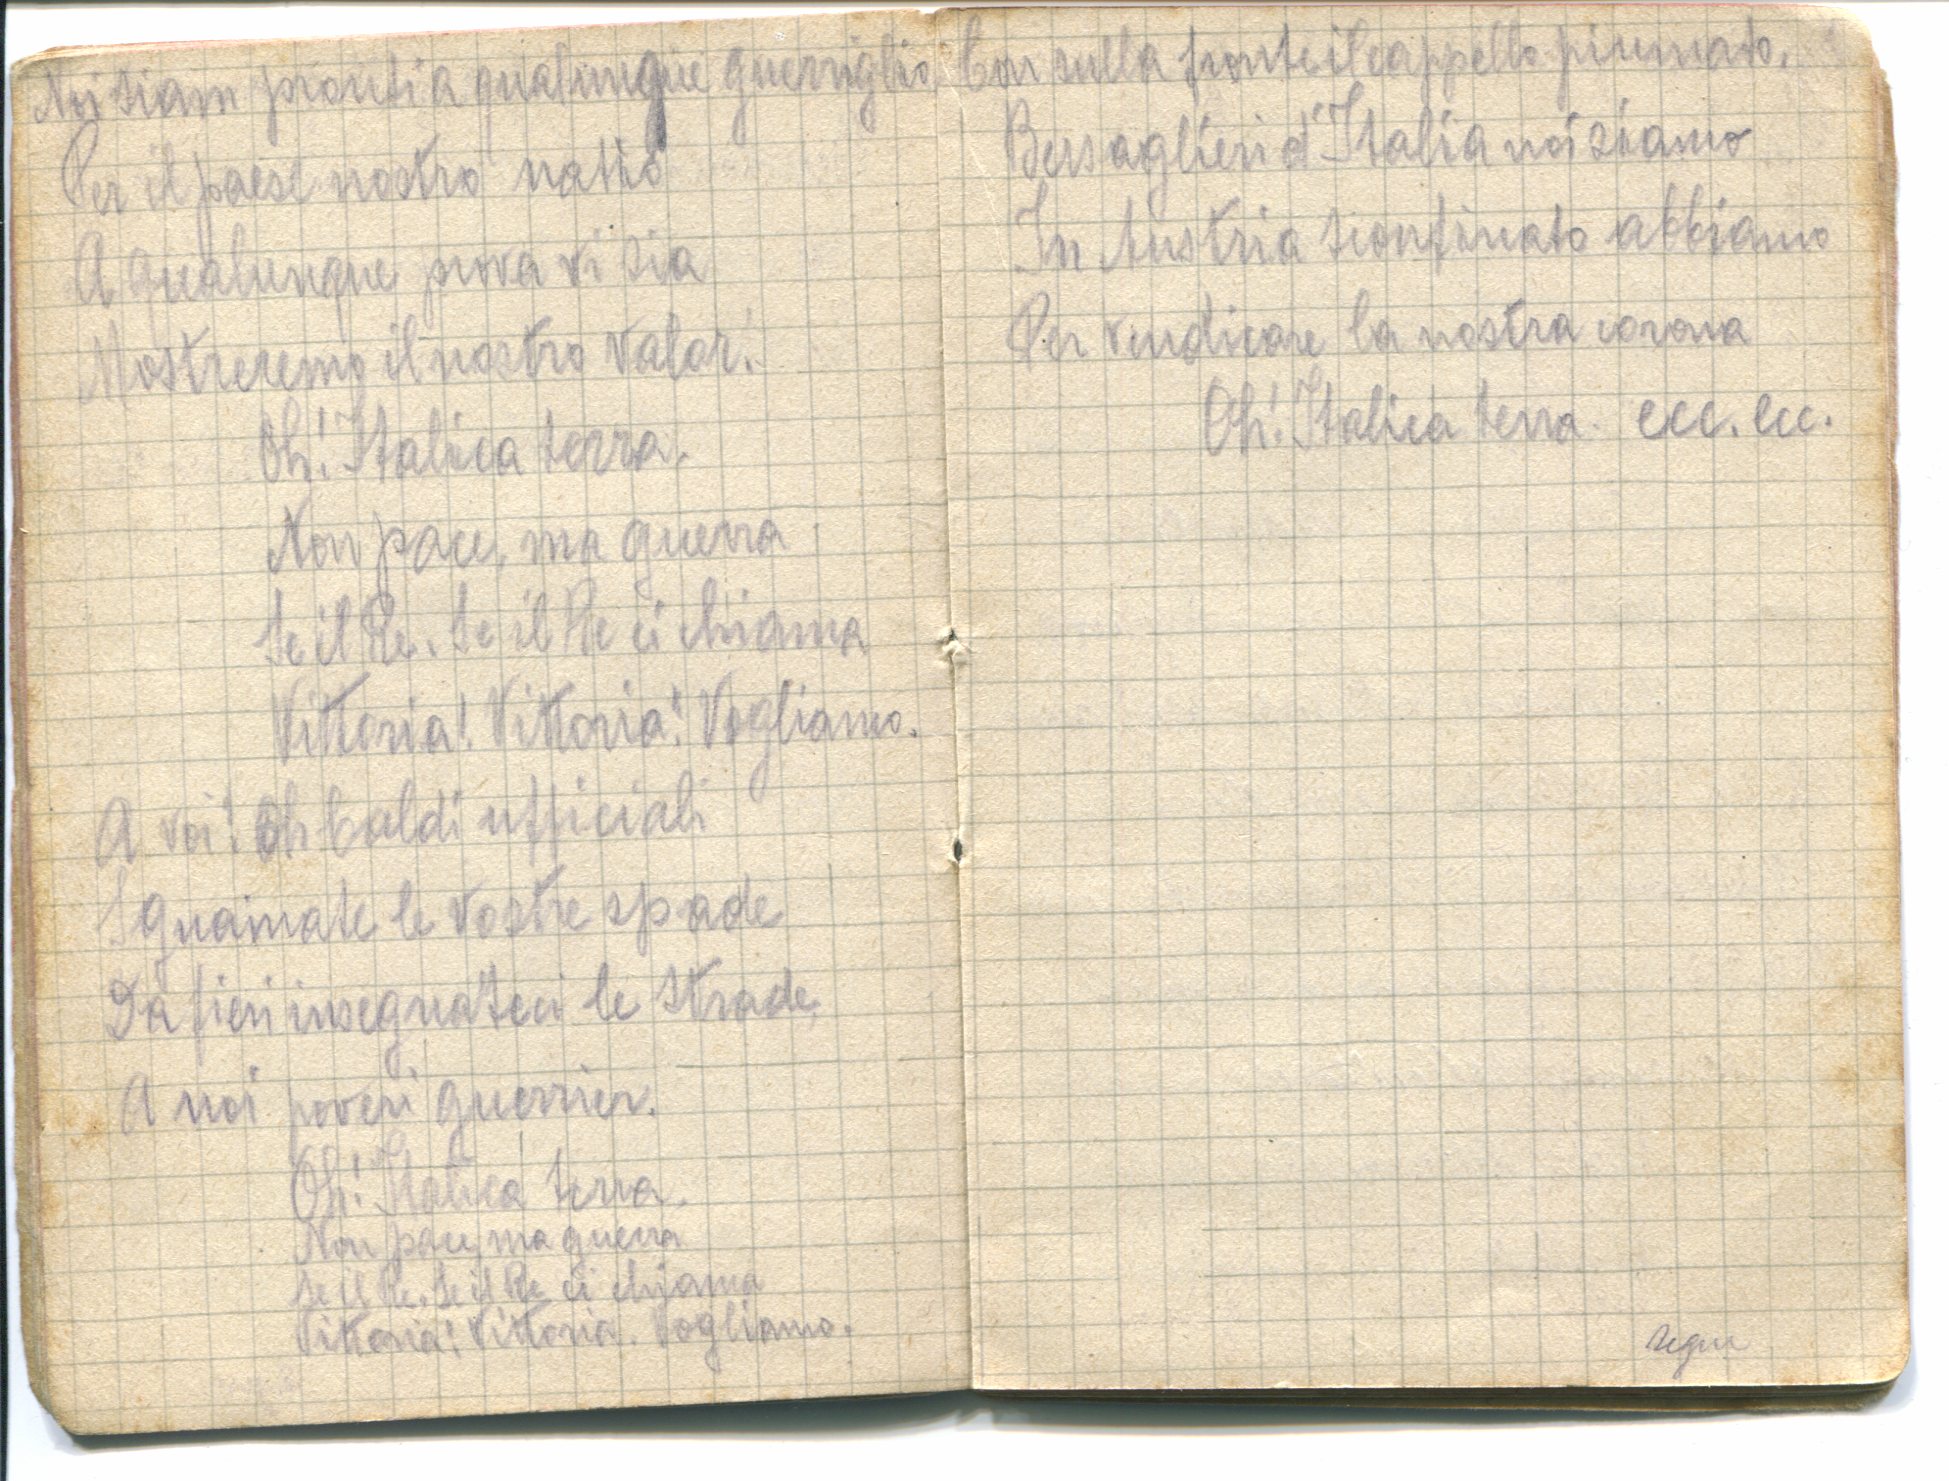 Noi siam pronti a qualunque guerriglia
Per il paese nostro natio
A qualunque prova vi sia
Mostreremo il nostro valor!
Oh! Italica terra.
Non pace, ma guerra
Se il Re. Se il Re ci chiama
Vittoria! Vittoria! Vogliamo.
A voi! Oh baldi ufficiali
Sguainate le vostre spade
Da fieri insegnateci le strade
A noi poveri guerrier.
Oh! Italica terra.
Non pace, ma guerra
Se il Re. Se il Re ci chiama
Vittoria! Vittoria. Vogliamo.
Con sulla fronte il cappello piumato.
Bersaglieri d'Italia noi siamo
In Austria sconfinato abbiamo
Per vendicare la nostra corona
Oh! Italica terra. ecc. ecc.
segue